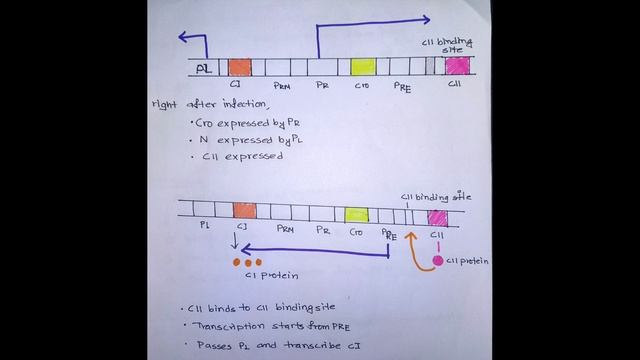 CII binding
site
PL
CI PRM PR Cro PRE CII
right after infection,
• Cro expressed by PR
• N expressed by PL
• CII expressed
CII binding site
PL CI PRM PR Cro PRE CII
CI protein
CII protein
• CII binds to CII binding site
• Transcription starts from PRE
• Passes PL and transcribe CI